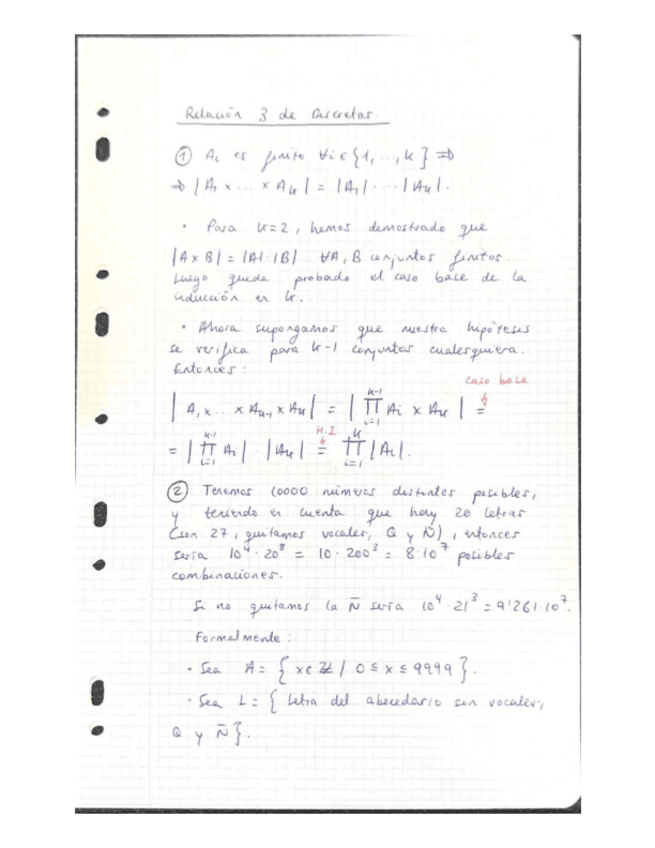 Relación 3 de Discretas.
① Ai es finito ∀i ∈ {1, .., k} ⇒
⇒ |A1 × ... × Ak| = |A1| ··· |Ak|.
• Para k=2, hemos demostrado que
|A × B| = |A|·|B| ∀A, B conjuntos finitos.
Luego queda probado el caso base de la
inducción en k.
• Ahora supongamos que nuestra hipótesis
se verifica para k-1 conjuntos cualesquiera.
Entonces:
caso base
| A1 × ... × Ak-1 × Ak | = | ∏_{i=1}^{k-1} Ai × Ak | =
H.I
= | ∏_{i=1}^{k-1} Ai | · |Ak| = ∏_{i=1}^{k} |Ai|.
② Tenemos 10000 números distintos posibles,
y teniendo en cuenta que hay 20 letras
(son 27, quitamos vocales, Q y Ñ), entonces
sería 10⁴ · 20³ = 10 · 200³ = 8·10⁷ posibles
combinaciones.
Si no quitamos la Ñ sería 10⁴ · 21³ = 9'261·10⁷.
Formalmente:
• Sea A = { x ∈ ℤ / 0 ≤ x ≤ 9999 }.
• Sea L = { Letra del abecedario sin vocales,
Q y Ñ }.